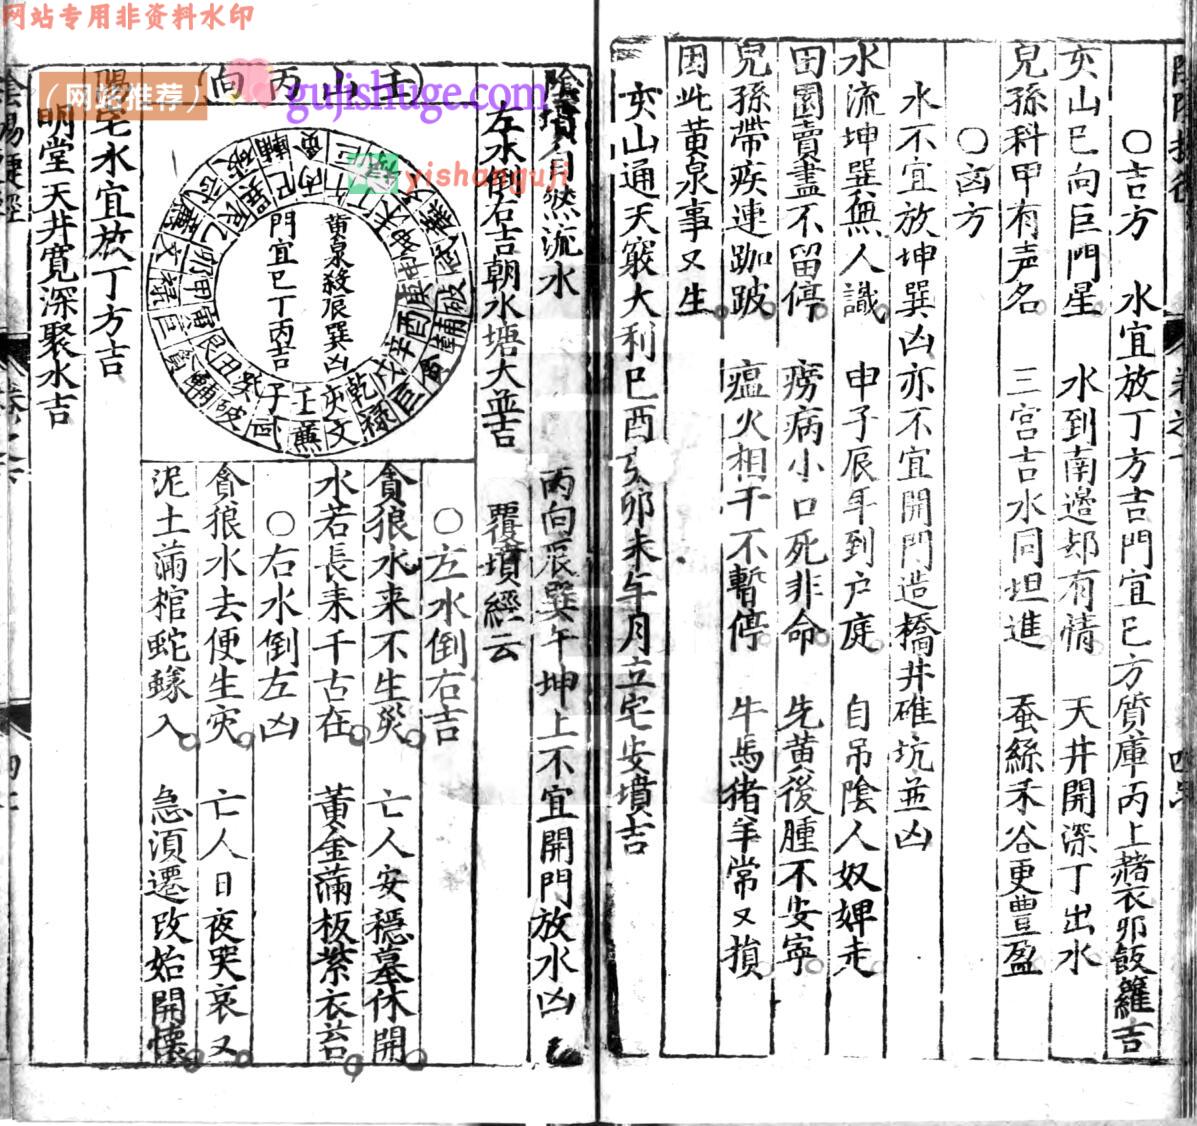 网站专用非资料水印
(网站推荐)
gujishuge.com
yishanguji
〇吉方 水宜放丁方吉門宜巳方質庫丙上赭衣卯飯籮吉
亥山巳向巨門星 水到南邊却有情 天井開深丁出水
兒孫科甲有声名 三宮吉水同坦進 蚕絲禾谷更豊盈
〇凶方
水不宜放坤巽凶亦不宜開門造橋井碓坑並凶
水流坤巽無人識 申子辰年到户庭 自吊陰人奴婢走
田園賣盡不留停 癆病小口死非命 先黄後腫不安寧
兒孫帶疾連跏跛 瘟火相干不暫停 牛馬猪羊常又損
因此黄泉事又生
亥山通天竅大利巳酉亥卯未午月立宅安墳吉
陰墳 流水 丙向辰巽午坤上不宜開門放水凶
左水倒右吉朝水塘大並吉 覆墳經云
(壬山丙向)
黄泉殺辰巽凶
門宜巳丁丙吉
〇左水倒右吉
貪狼水来不生災 亡人安穏墓休開
水若長来千古在 黄金滿板紫衣苔
〇右水倒左凶
貪狼水去便生灾 亡人日夜哭哀又
泥土滿棺蛇蟻入 急須遷改始開懷
陽宅水宜放丁方吉
明堂天井寛深聚水吉